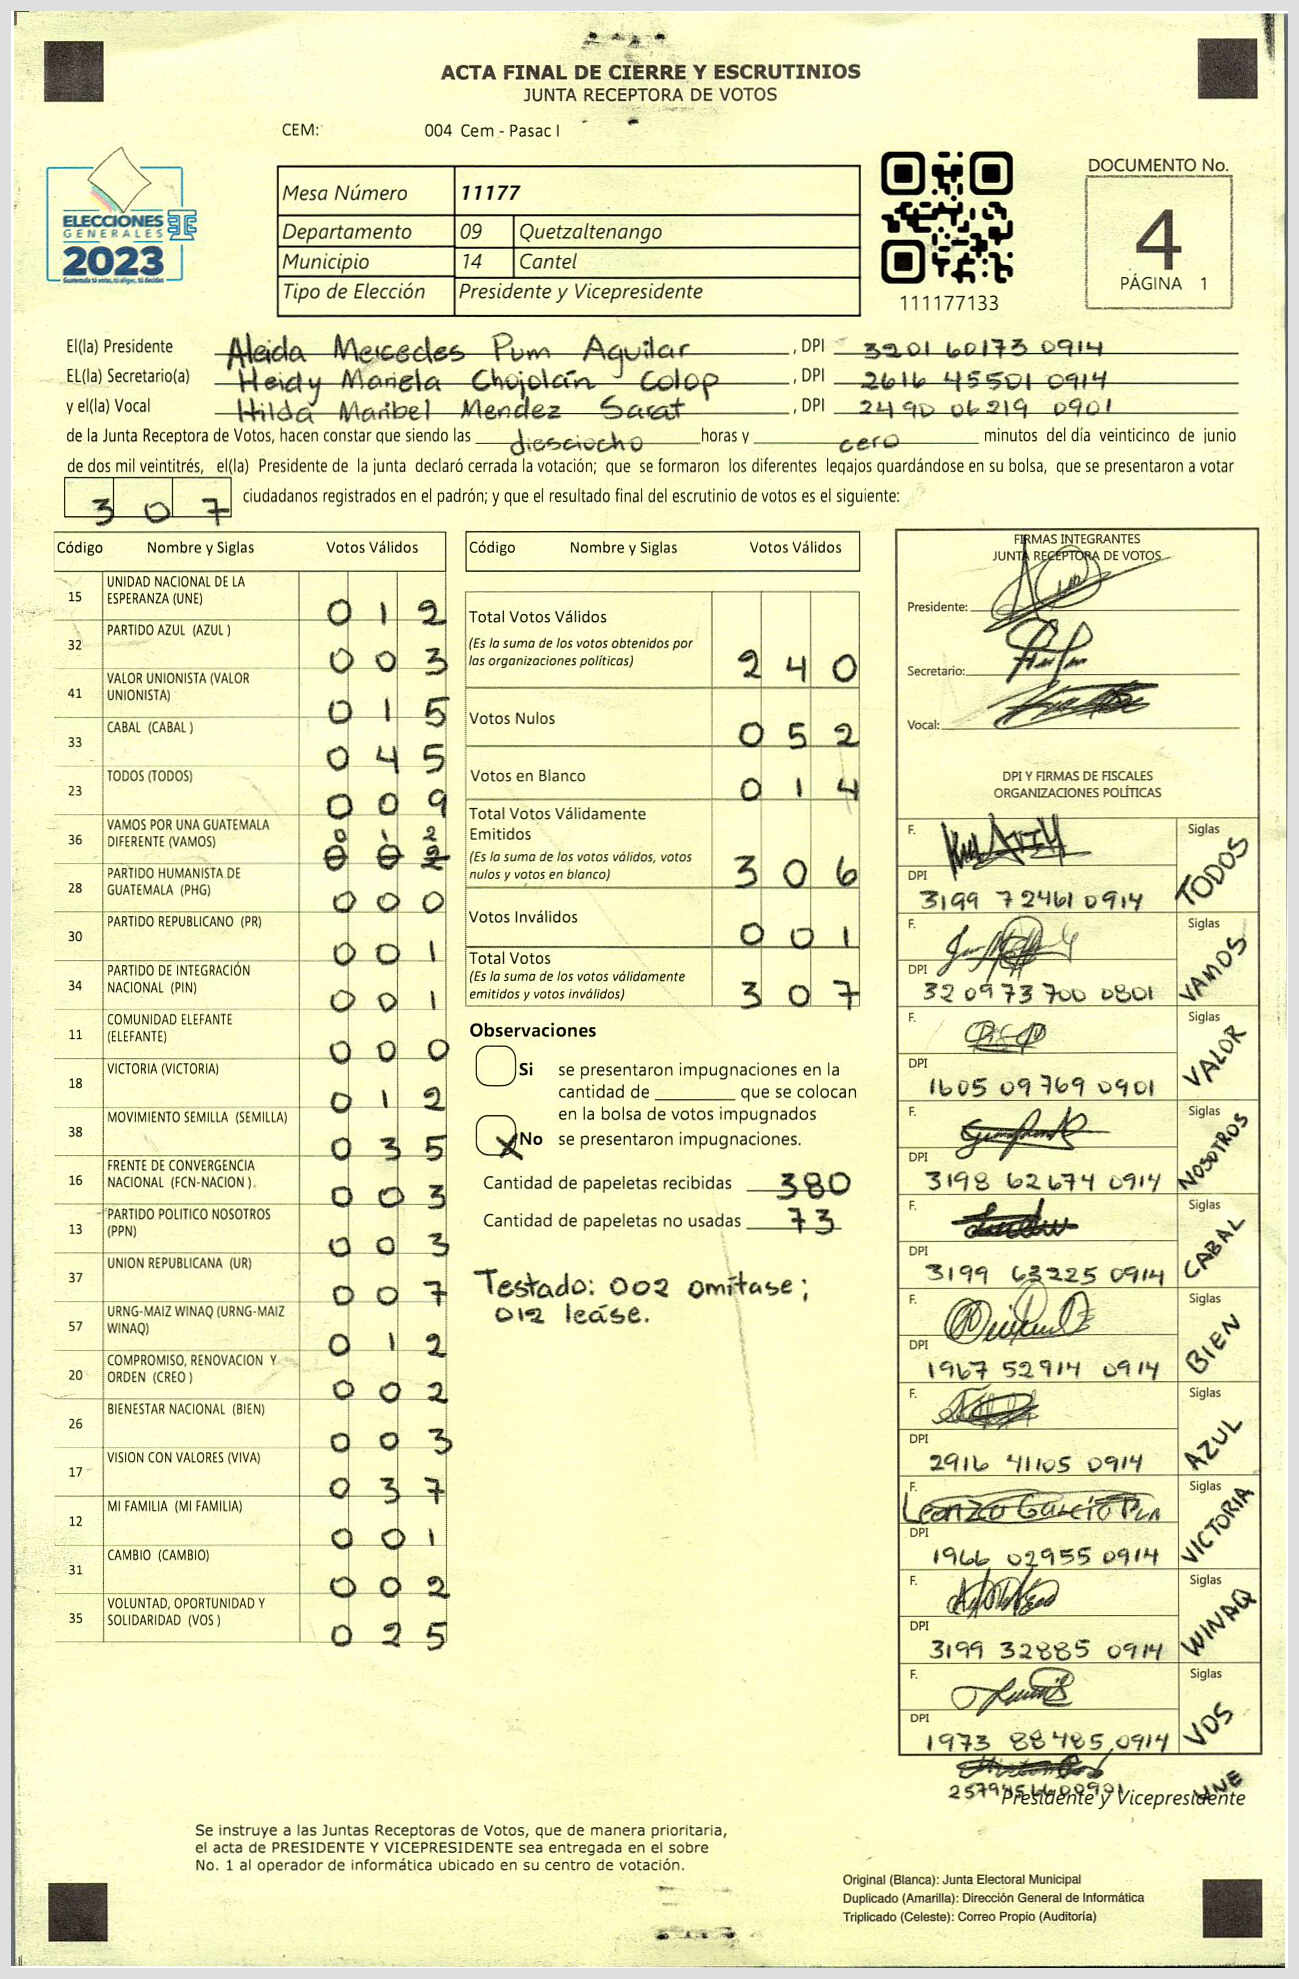 ACTA FINAL DE CIERRE Y ESCRUTINIOS
JUNTA RECEPTORA DE VOTOS
CEM: 004 Cem - Pasac I
ELECCIONES
GENERALES
2023
Mesa Número 11177
Departamento 09 Quetzaltenango
Municipio 14 Cantel
Tipo de Elección Presidente y Vicepresidente
111177133
DOCUMENTO No.
4
PÁGINA 1
El(la) Presidente Aleida Mercedes Pum Aguilar, DPI 3201 60173 0914
EL(la) Secretario(a) Heidy Mariela Chojolán Colop, DPI 2616 45501 0914
y el(la) Vocal Hilda Maribel Mendez Sarat, DPI 2490 06219 0901
de la Junta Receptora de Votos, hacen constar que siendo las diesciocho horas y cero minutos del día veinticinco de junio
de dos mil veintitrés, el(la) Presidente de la junta declaró cerrada la votación; que se formaron los diferentes legajos quardándose en su bolsa, que se presentaron a votar
307 ciudadanos registrados en el padrón; y que el resultado final del escrutinio de votos es el siguiente:
Código Nombre y Siglas Votos Válidos
15 UNIDAD NACIONAL DE LA ESPERANZA (UNE) 012
32 PARTIDO AZUL (AZUL ) 003
41 VALOR UNIONISTA (VALOR UNIONISTA) 015
33 CABAL (CABAL ) 045
23 TODOS (TODOS) 009
36 VAMOS POR UNA GUATEMALA DIFERENTE (VAMOS) 012 002
28 PARTIDO HUMANISTA DE GUATEMALA (PHG) 000
30 PARTIDO REPUBLICANO (PR) 001
34 PARTIDO DE INTEGRACIÓN NACIONAL (PIN) 001
11 COMUNIDAD ELEFANTE (ELEFANTE) 000
18 VICTORIA (VICTORIA) 012
38 MOVIMIENTO SEMILLA (SEMILLA) 035
16 FRENTE DE CONVERGENCIA NACIONAL (FCN-NACION ) 003
13 PARTIDO POLITICO NOSOTROS (PPN) 003
37 UNION REPUBLICANA (UR) 007
57 URNG-MAIZ WINAQ (URNG-MAIZ WINAQ) 012
20 COMPROMISO, RENOVACION Y ORDEN (CREO ) 002
26 BIENESTAR NACIONAL (BIEN) 003
17 VISION CON VALORES (VIVA) 037
12 MI FAMILIA (MI FAMILIA) 001
31 CAMBIO (CAMBIO) 002
35 VOLUNTAD, OPORTUNIDAD Y SOLIDARIDAD (VOS ) 025
Código Nombre y Siglas Votos Válidos
Total Votos Válidos
(Es la suma de los votos obtenidos por
las organizaciones políticas) 240
Votos Nulos 052
Votos en Blanco 014
Total Votos Válidamente
Emitidos
(Es la suma de los votos válidos, votos
nulos y votos en blanco) 306
Votos Inválidos 001
Total Votos
(Es la suma de los votos válidamente
emitidos y votos inválidos) 307
Observaciones
Si se presentaron impugnaciones en la
cantidad de ________ que se colocan
en la bolsa de votos impugnados
X No se presentaron impugnaciones.
Cantidad de papeletas recibidas 380
Cantidad de papeletas no usadas 73
Testado: 002 omítase;
012 leáse.
FIRMAS INTEGRANTES
JUNTA RECEPTORA DE VOTOS
Presidente:
Secretario:
Vocal:
DPI Y FIRMAS DE FISCALES
ORGANIZACIONES POLÍTICAS
F. Siglas TODOS
DPI 3199 72461 0914
F. Siglas VAMOS
DPI 320973700 0801
F. Siglas VALOR
DPI 1605 09769 0901
F. Siglas NOSOTROS
DPI 3198 62674 0914
F. Siglas CABAL
DPI 3199 63225 0914
F. Siglas BIEN
DPI 1967 52914 0914
F. Siglas AZUL
DPI 2916 41105 0914
F. Siglas VICTORIA
DPI 1966 02955 0914
F. Siglas WINAQ
DPI 3199 32885 0914
F. Siglas VOS
DPI 1973 88485 0914
UNE
Presidente y Vicepresidente
Se instruye a las Juntas Receptoras de Votos, que de manera prioritaria,
el acta de PRESIDENTE Y VICEPRESIDENTE sea entregada en el sobre
No. 1 al operador de informática ubicado en su centro de votación.
Original (Blanca): Junta Electoral Municipal
Duplicado (Amarilla): Dirección General de Informática
Triplicado (Celeste): Correo Propio (Auditoría)